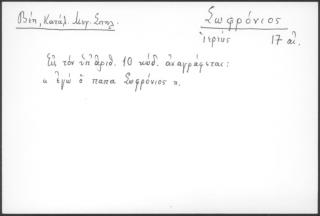 Βέη, Κατάλ. Μεγ. Σπηλ.
Σωφρόνιος
ἱερεύς 17 αἰ.
Εἰς τὸν ὑπ' ἀριθ. 10 κώδ. ἀναγράφεται:
« ἐγὼ ὁ παπα Σωφρόνιος ».